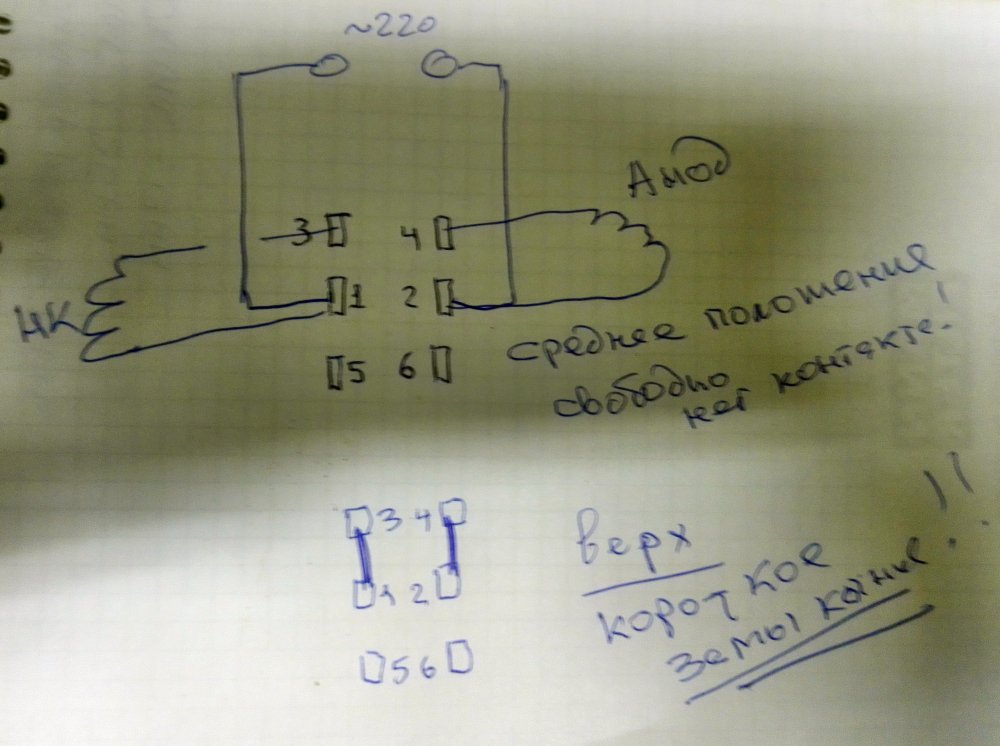 ~220
Анод
3 4
НК
1 2
5 6
среднее положение
свободно
нет контакте!
3 4
1 2
5 6
верх
короткое
замыкание!!